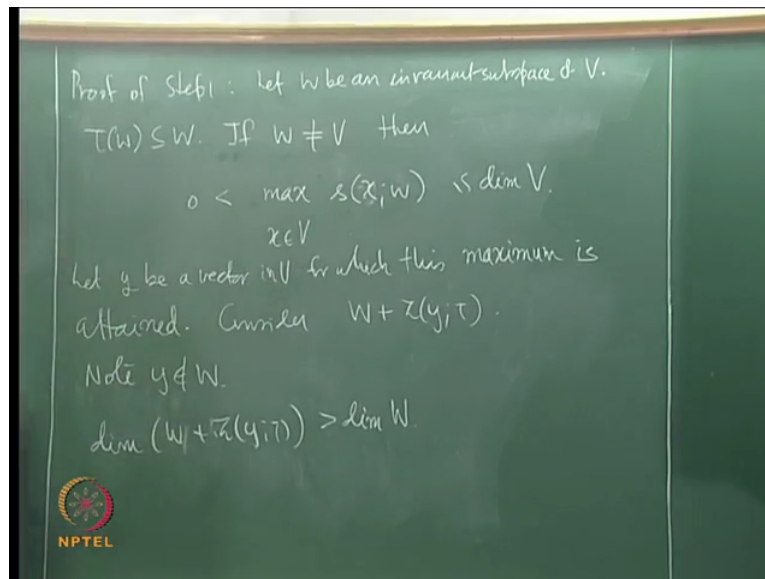 Proof of Step1 : Let W be an invariant subspace of V.
T(W) ⊆ W. If W ≠ V then
0 < max s(x; W) ≤ dim V.
x∈V
Let y be a vector in V for which this maximum is
attained. Consider W + Z(y; T).
Note y ∉ W.
dim (W + Z(y; T)) > dim W
NPTEL